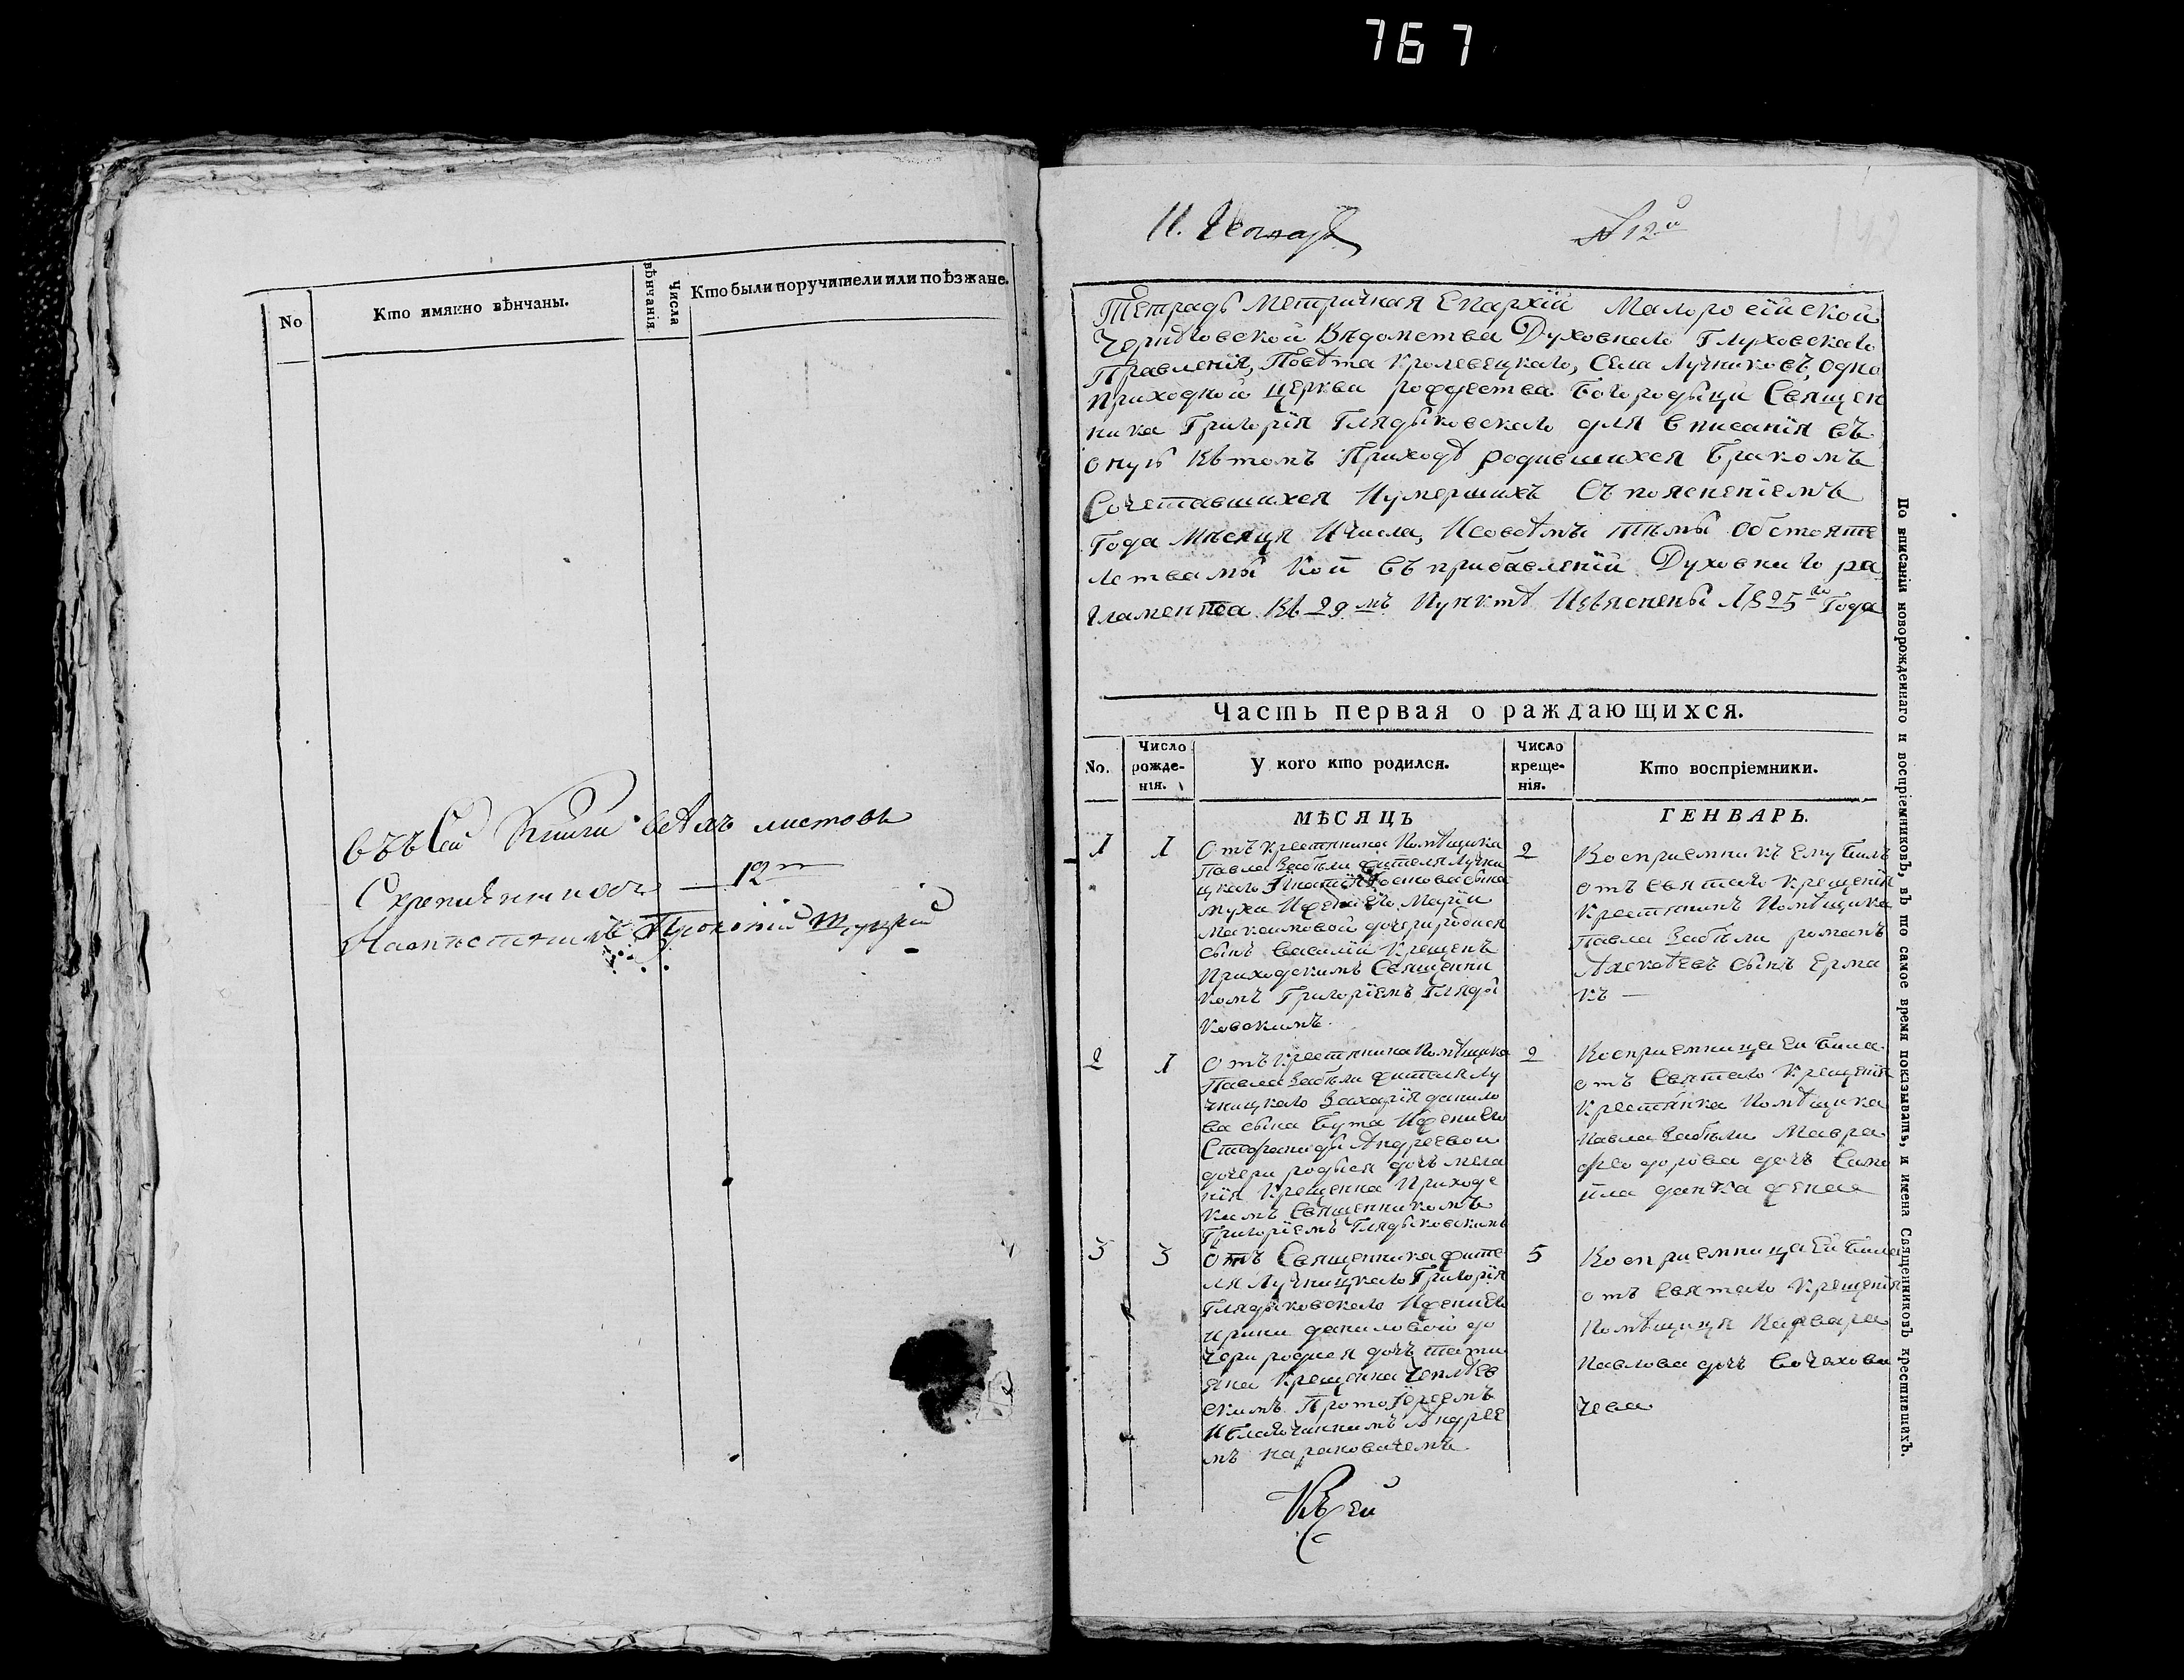 767
No
Кто имянно вѣнчаны.
Числа вѣнчанія
Кто были поручители или поѣзжане.
въ Сей Книги всѣхъ листовъ
12
Прокопій
11.
№ 12й
Тетрадь Метричная Епархіи Малоросійской
Черниговской Вѣдомства Духовнаго Глуховскаго
Правленія, Повѣта Кролевецкаго, Села Лучниковъ, одно
приходной церкви рождества Богородыци Священ
ника Григорія Глядыковскаго для вписанія въ
оную въ томъ Приходѣ родившихся Бракомъ
Сочетавшихся И умершихъ Съ пояснениемъ
Года Мѣсяця И числа, И совсѣмы тѣмы обстояте
лствамы кои въ прибавленіи Духовнаго ра
гламента въ 29 мъ пунктѣ Изъяснены 1825 го Года
Часть первая о раждающихся.
No.
Число рожде-нія.
У кого кто родился.
Число креще-нія.
Кто воспріемники.
МѢСЯЦЪ
ГЕНВАРЬ.
1 1 Отъ крестянина Помѣщика
Павла Забѣлы жителя Лучни
цкаго
муха И жени его Маріи
Максимовой дочери родися
сынъ Василій Крещенъ
Приходскимъ Священни
комъ Григоріемъ Гляды
ковскимъ.
2 Восприемникъ Ему Билъ
отъ святаго крещенія
крестянинъ Помѣщика
Павла Забѣлы романъ
Алексѣевъ сынъ Ерма
къ —
2 1 Отъ крестянина Помѣщика
Павла Забѣлы жителя Лу
чницкаго Захарія данило
ва сына Бута И жени его
Стефаниды Андреевой
дочери родися дочь мела
нія Крещенна Приходс
кимъ Священникомъ
Григоріемъ Глядыковскимъ
2 Восприемница Ей Била
отъ Святаго Крещенія
крестянка Помѣщика
Павла Забѣлы Мавра
Феодорова дочь Само
йла жена
3 3 Отъ Священника жите
ля Лучницкаго Григорія
Глядыковскаго И жени Его
ирини даниловой до
чери родися дочь тати
яна Крещенна
скимъ Протоіереемъ
И Благочиннимъ Андрее
мъ
5 Восприемница Ей Била
отъ Святаго Крещенія
Помѣщиця Варвара
Павлова дочь
чева
По вписаніи новорожденнаго и воспріемниковъ, въ то самое время показывать, и имена Священниковъ крестившихъ.